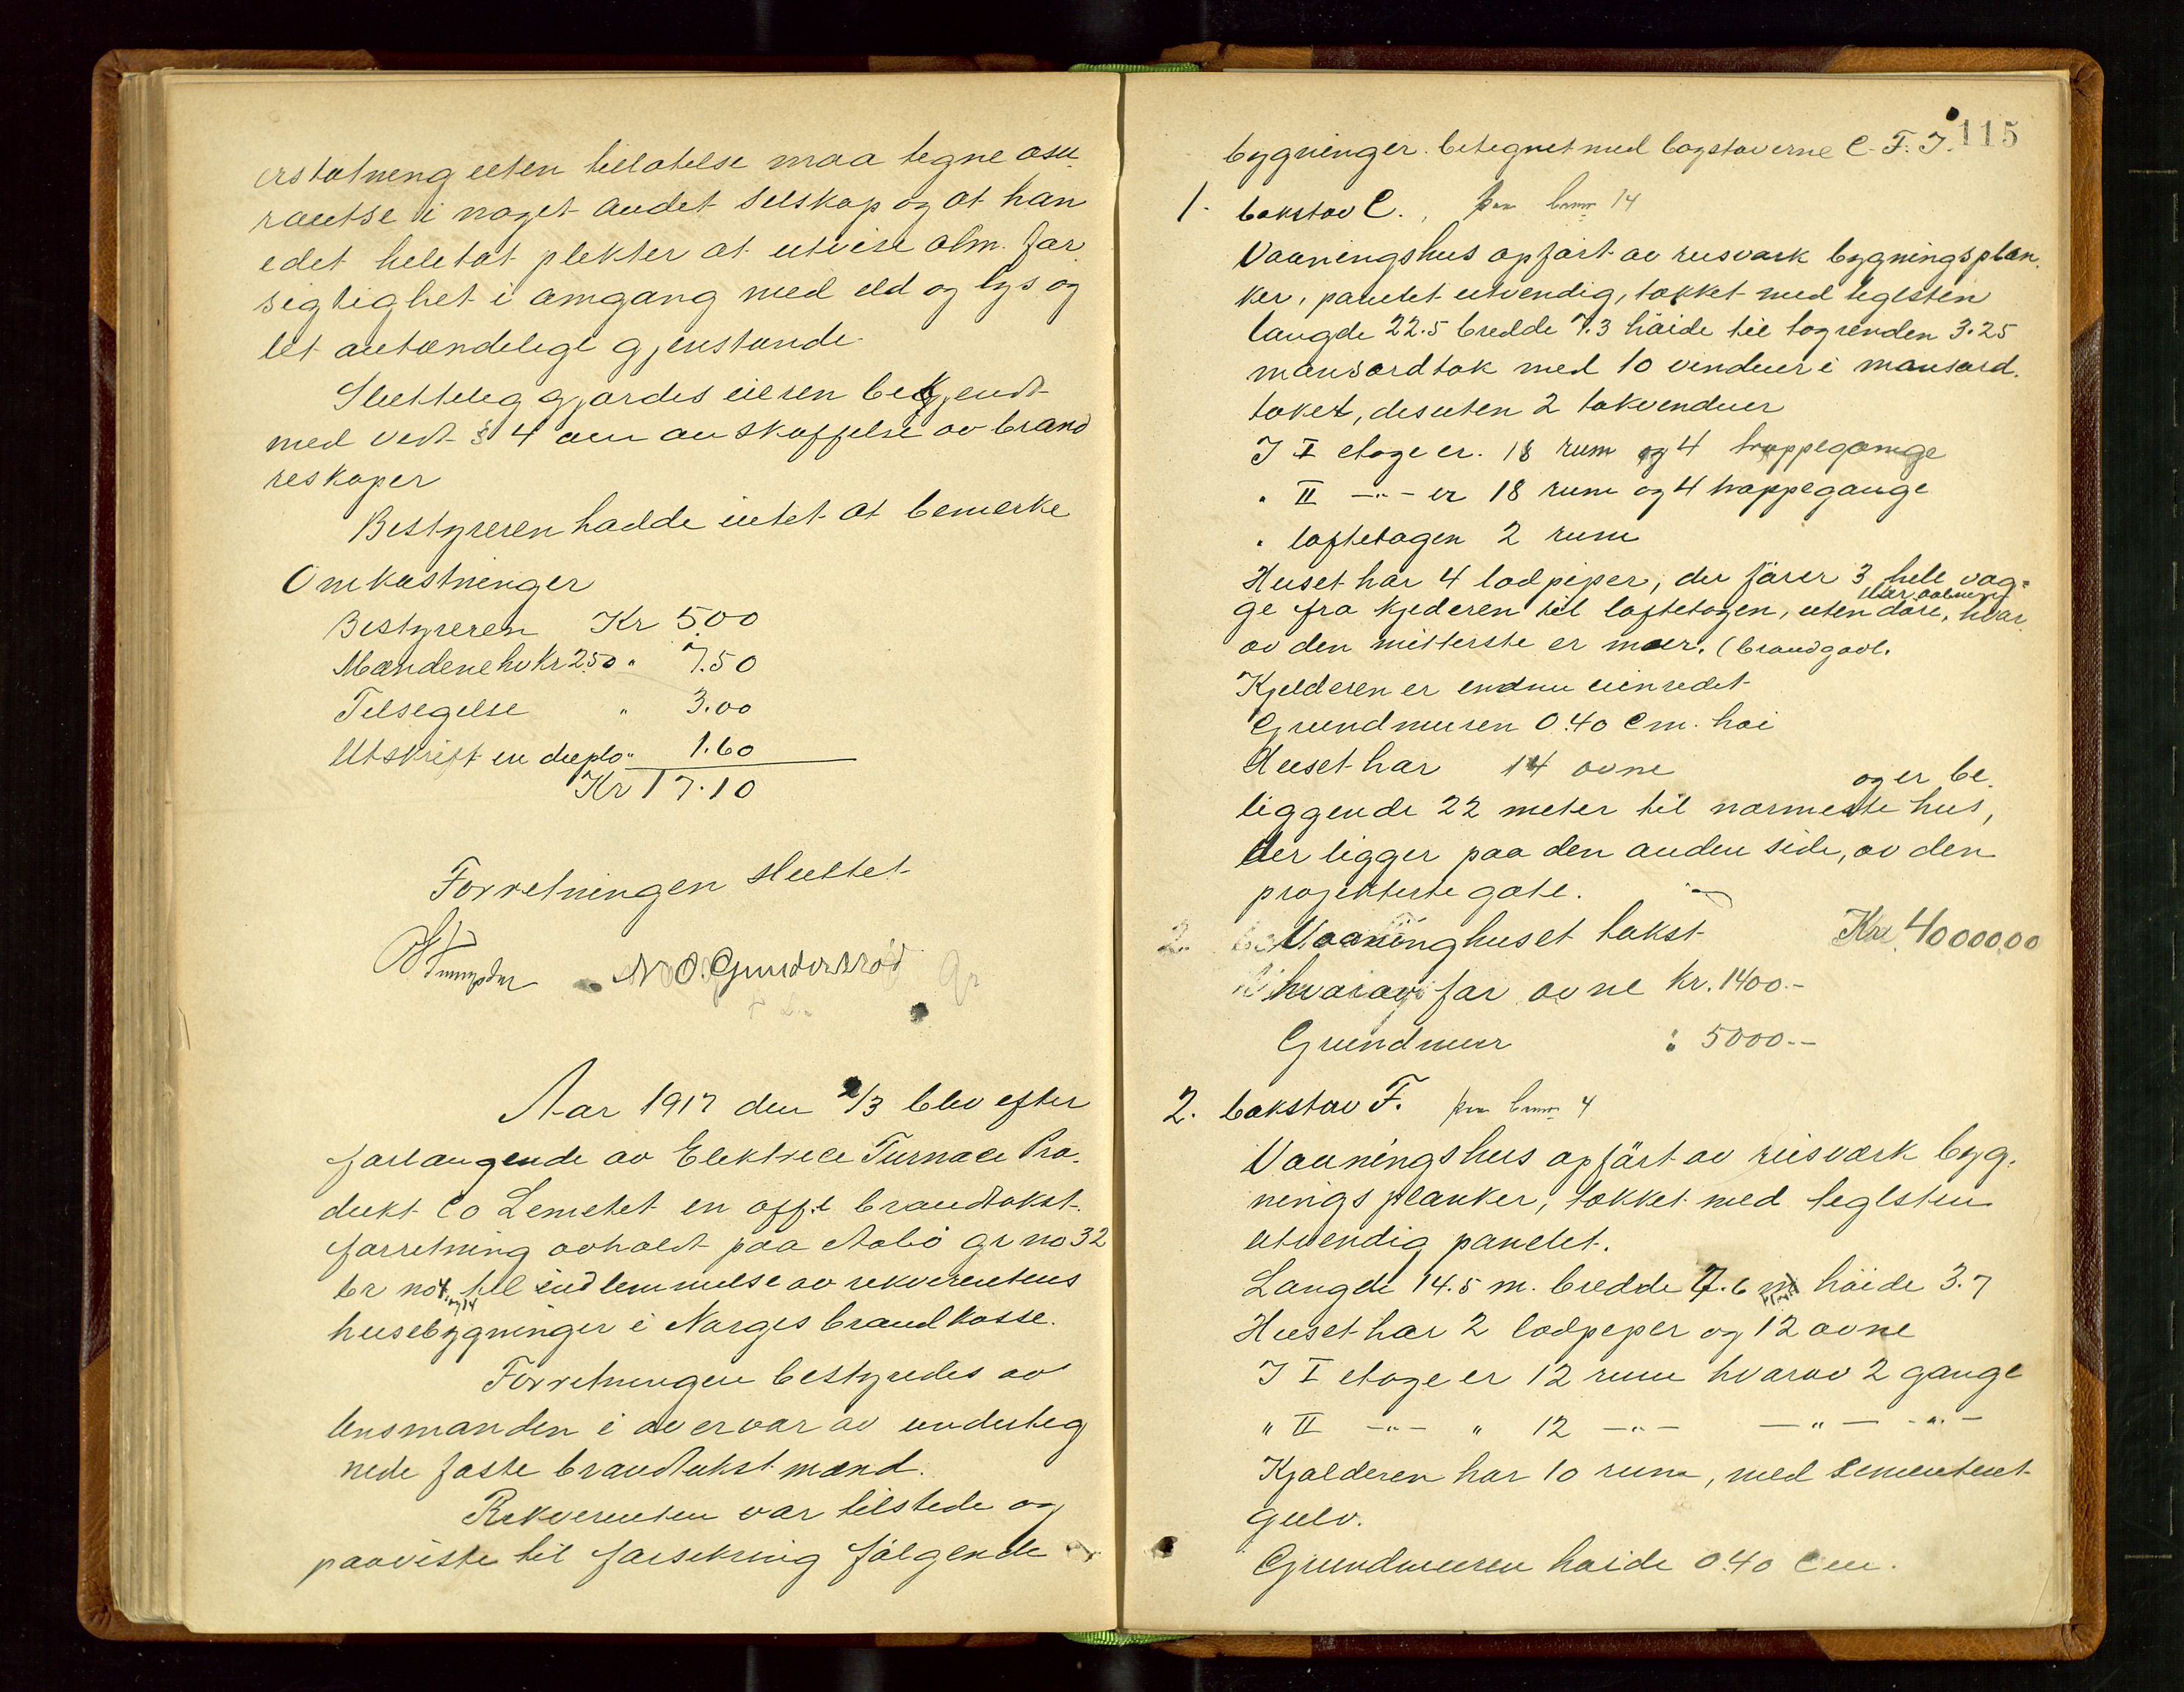 erstatning uten tillatelse maa tegne assu
rantse i noget andet selskap og at han
edet heletat plekter at utvise alm. for
sigtighet i omgang med eld og lys og
let antændelige gjenstande.
Sluttelig gjordes eieren bekjendt
med vedt § 4 om anskaffelse av brand
reskaper
Bestyreren hadde intet at bemerke
Omkostninger
Bestyreren Kr 5.00
Mændene hv Kr 2.50 " 7.50
Tilsigelse " 3.00
Utskrift in duplo " 1.60
Kr 17.10
Forretningen sluttet
N O. Gunderstod
Aar 1917 den 2/3 blev efter
forlangende av Elektrice Furnace Pro.
dukt Co Limetet en offl brandtakst.
forretning avholdt paa Aabö gr no 32
br no 4 og 14 til indlemmelse av rekvirentens
husebygninger i Norges brandkasse.
Forretningen bestyredes av
lensmanden i overvær av underteg
nede faste brandtakstmænd.
Rekvirenten var tilstede og
paaviste til forsikring fölgende
115
bygninger betegnet med bogstaverne C. F. J.
1. bokstav C. paa brno 14
Vaaningshus opfört av reisværk bygningsplan.
ker, panelet utvendig, tækket med teglsten
længde 22.5 bredde 7.3 höide til tagrenden 3.25
mansardtak med 10 vinduer i mansard.
taket, desuten 2 takvinduer
I I etage er 18 rum og 4 trappegange
" II -"- er 18 rum og 4 trappegange
" loftetagen 2 rum
Huset har 4 lodpiper, der förer 3 hele væg=
ge fra kjelderen til loftetagen, uten döraabning döre, hvor
av den mitterste er muer. (brandgavl.
Kjelderen er endnu uinredet
Grundmuren 0.40 cm. höi
Huset har 14 ovne og er be.
liggende 22 meter til nærmeste hus,
der ligger paa den anden side, av den
projekterte gate.
Vaaninghuset takst Kr 40000.00
hvorav for ovne kr. 1400.-
Grundmur : 5000.-
2. bokstav F. paa brno 4
Vaaningshus opfört av reisværk byg.
nings planker, tækket med teglsten
utvendig panelet.
Længde 14.5 m. bredde 7.6 m höide 3.7
Huset har 2 lodpiper og 12 ovne
I I etage er 12 rum hvorav 2 gange
" II -"- " 12 -"- -"- -"-
Kjælderen har 10 rum, med sementeret
gulv.
Grundmuren höide 0.40 cm.